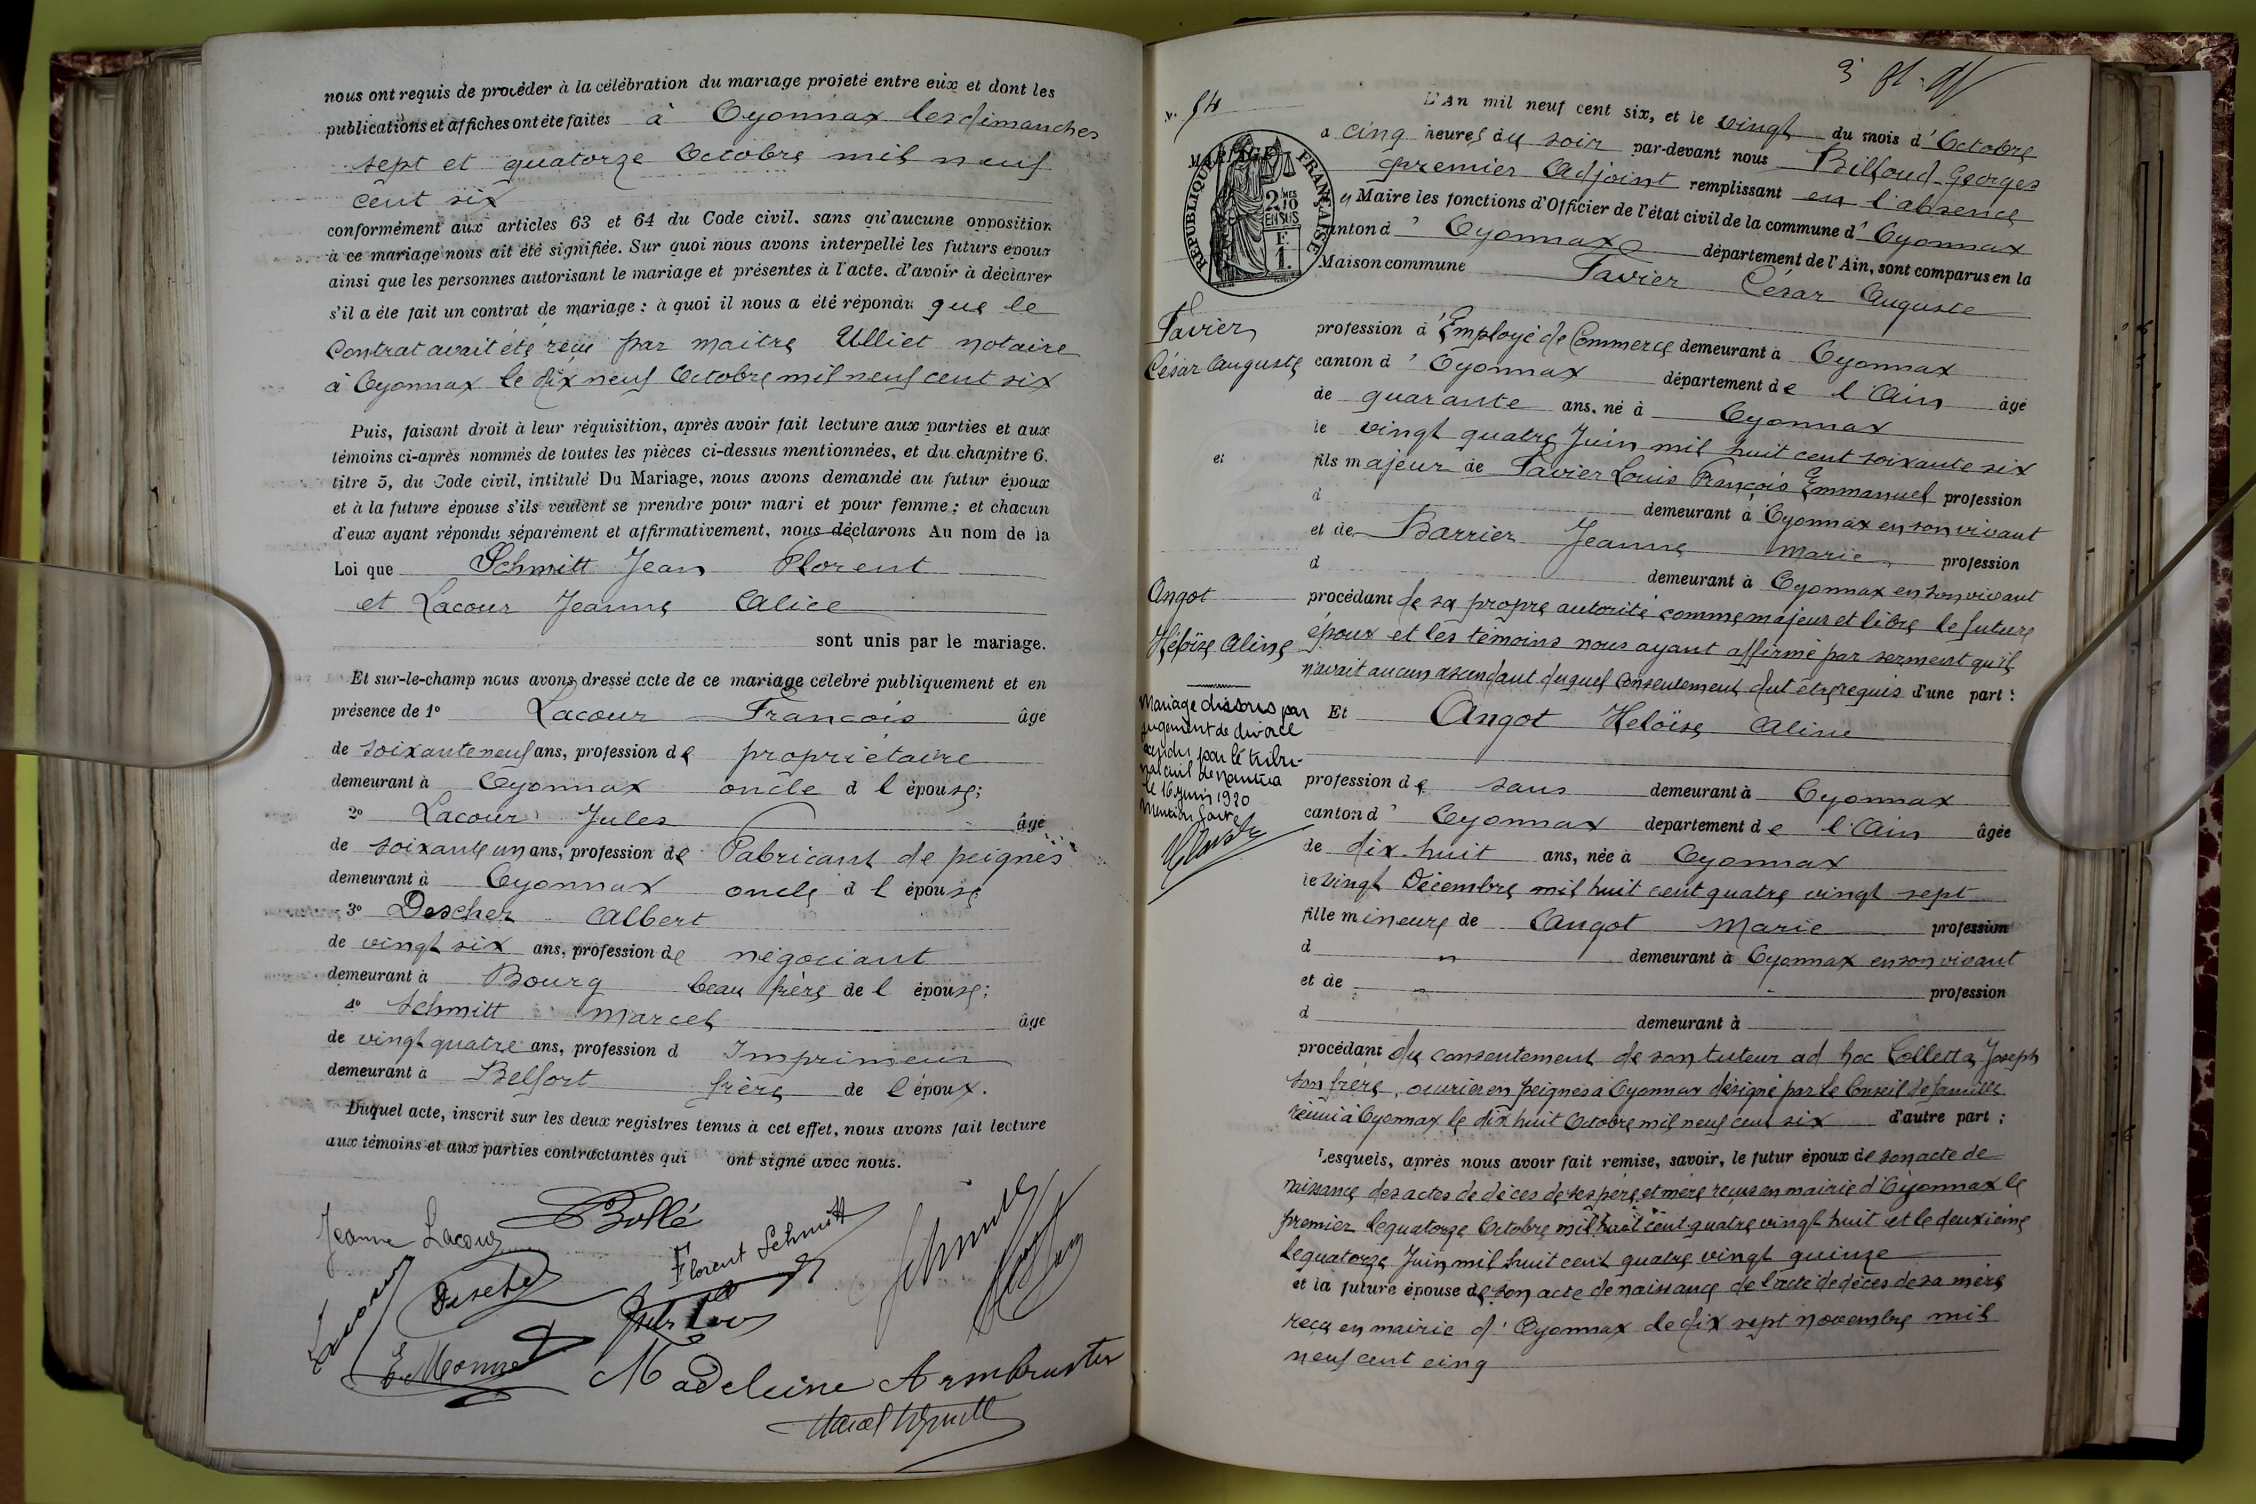 nous ont requis de procéder à la célébration du mariage projeté entre eux et dont les
publications et affiches ont été faites à Oyonnax les dimanches
sept et quatorze Octobre mil neuf
cent six
conformément aux articles 63 et 64 du Code civil. sans qu'aucune opposition
à ce mariage nous ait été signifiée. Sur quoi nous avons interpellé les futurs époux
ainsi que les personnes autorisant le mariage et présentes à l'acte. d'avoir à déclarer
s'il a été fait un contrat de mariage : à quoi il nous a été répondu que le
Contrat avait été reçu par maitre Ulliet notaire
à Oyonnax le dix neuf Octobre mil neuf cent six
Puis, faisant droit à leur réquisition, après avoir fait lecture aux parties et aux
témoins ci-après nommés de toutes les pièces ci-dessus mentionnées, et du chapitre 6.
titre 5, du Code civil, intitulé Du Mariage, nous avons demandé au futur époux
et à la future épouse s'ils veulent se prendre pour mari et pour femme ; et chacun
d'eux ayant répondu séparément et affirmativement, nous déclarons Au nom de la
Loi que Schmitt Jean Florent
et Lacour Jeanne Alice
sont unis par le mariage.
Et sur-le-champ nous avons dressé acte de ce mariage célébré publiquement et en
présence de 1° Lacour François âgé
de soixante neuf ans, profession de propriétaire
demeurant à Oyonnax oncle d l épouse;
2° Lacour Jules âgé
de soixante un ans, profession de Fabricant de peignes
demeurant à Oyonnax oncle d l épouse
3° Descher Albert
de vingt six ans, profession de négociant
demeurant à Bourg beau frère de l épouse;
4° Schmitt Marcel âgé
de vingt quatre ans, profession d Imprimeur
demeurant à Belfort frère de l époux.
Duquel acte, inscrit sur les deux registres tenus à cet effet, nous avons fait lecture
aux témoins et aux parties contractantes qui ont signé avec nous.
Jeanne Lacour Bollé
Florent Schmitt Schmitt
Lacour Descher
E. Monnet
Madeleine Armbruster
Marcel Schmitt
N. 54
L'An mil neuf cent six, et le vingt du mois d'Octobre
à cinq heures du soir par-devant nous Billoud Georges
premier Adjoint remplissant en l'absence
du Maire les fonctions d'Officier de l'état civil de la commune d' Oyonnax
canton d' Oyonnax département de l'Ain, sont comparus en la
Maison commune Favier César Auguste
RÉPUBLIQUE FRANÇAISE
MARIAGE
2/10MES
EN SUS
F.
1.
Favier
César Auguste
profession d'Employé de Commerce demeurant à Oyonnax
canton d' Oyonnax département de l'Ain âgé
de quarante ans, né à Oyonnax
le vingt quatre Juin mil huit cent soixante six
et
fils majeur de Favier Louis François Emmanuel profession
d demeurant à Oyonnax en son vivant
et de Barrier Jeanne Marie profession
d demeurant à Oyonnax en son vivant
Angot
Héloïse Aline
procédant de sa propre autorité comme majeur et libre le future
époux et les témoins nous ayant affirmé par serment qu'il
n'avait aucun ascendant duquel consentement dut être requis d'une part :
Mariage dissous par
jugement de divorce
rendu par le tribu-
nal civil de Nantua
le 16 juin 1920
Mention faite
Et Angot Héloïse Aline
profession de sans demeurant à Oyonnax
canton d' Oyonnax département de l'Ain âgée
de dix-huit ans, née à Oyonnax
le vingt Décembre mil huit cent quatre vingt sept
fille mineure de Angot Marie profession
d demeurant à Oyonnax en son vivant
et de profession
d demeurant à
procédant du consentement de son tuteur ad hoc Colletta Joseph
son frère, ouvrier en peignes à Oyonnax désigné par le Conseil de famille
réuni à Oyonnax le dix huit Octobre mil neuf cent six d'autre part :
Lesquels, après nous avoir fait remise, savoir, le futur époux de son acte de
naissance des actes de décès de ses père et mère reçus en mairie d'Oyonnax le
premier le quatorze Octobre mil huit cent quatre vingt huit et le deuxième
le quatorze Juin mil huit cent quatre vingt quinze
et la future épouse de son acte de naissance de l'acte de décès de sa mère
reçu en mairie d'Oyonnax le dix sept novembre mil
neuf cent cinq